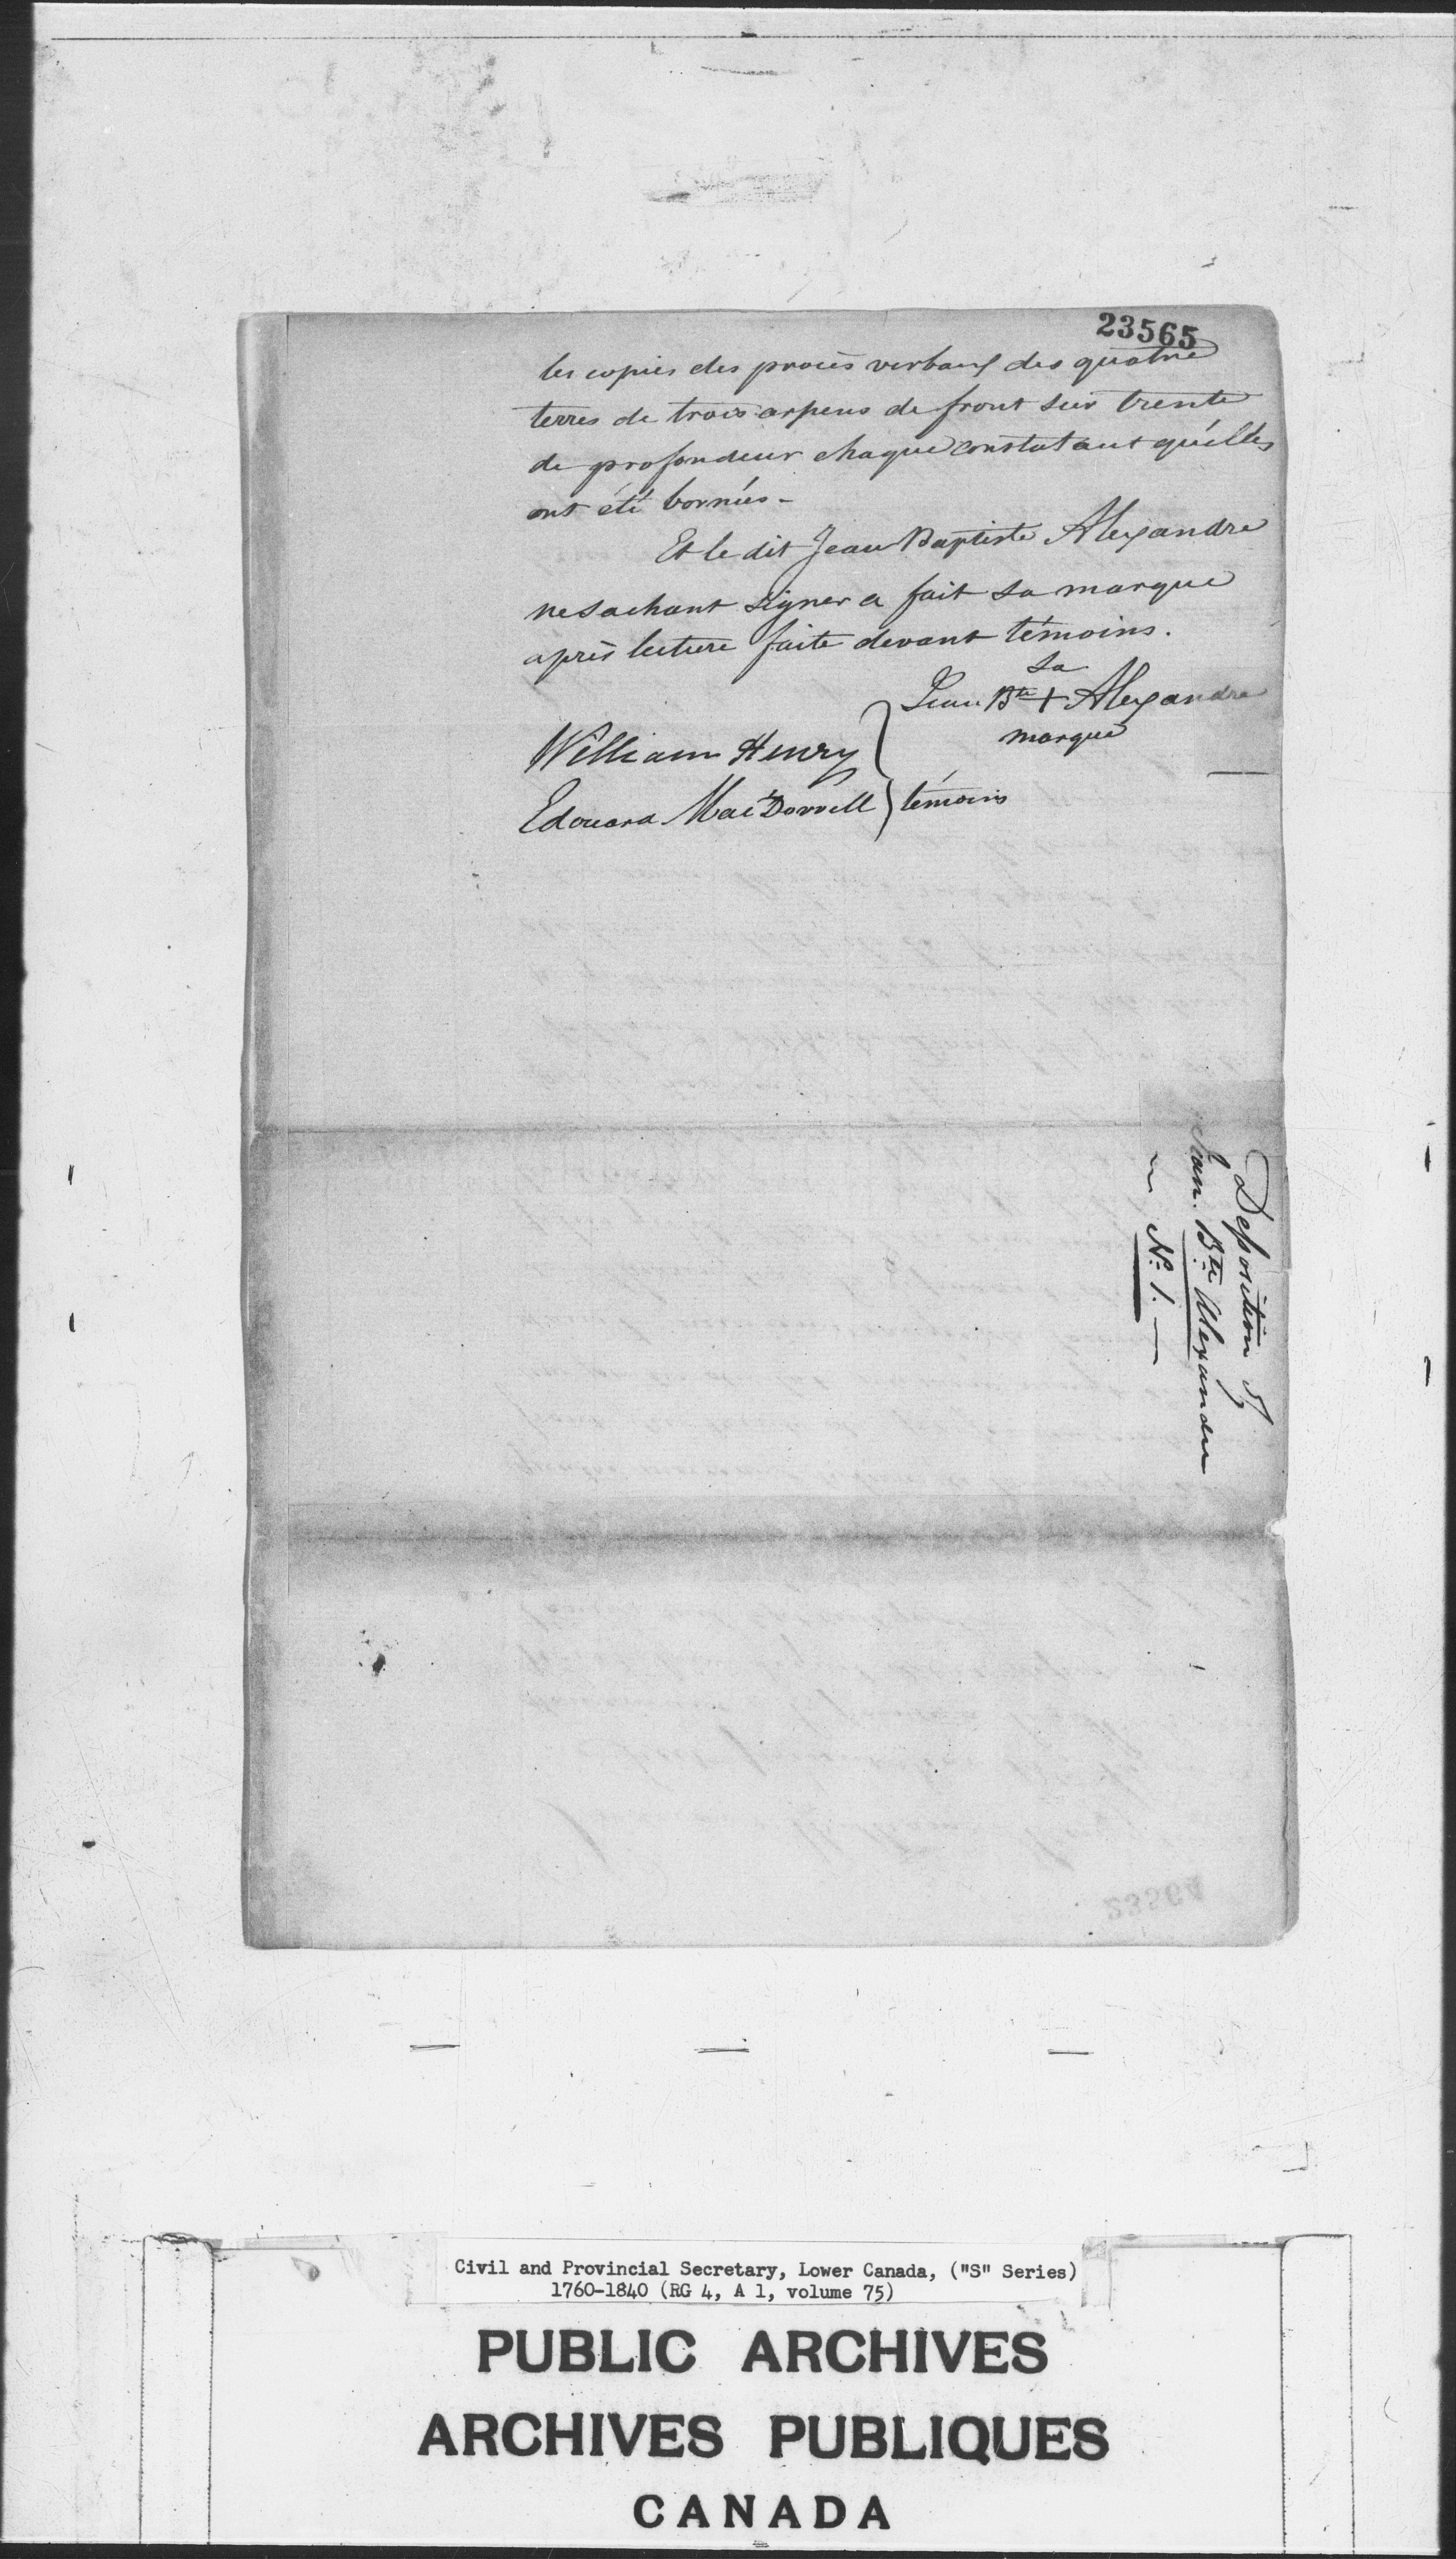 23565
les copies des procès verbaux des quatre
terres de trois arpens de front sur trente
de profondeur chaque constatant qu'elles
ont été bornées -
Et le dit Jean Baptiste Alexandre
ne sachant signer a fait sa marque
après lecture faite devant témoins.
sa
Jean Bte + Alexandre
marque
William Henry
Edouard MacDonell } témoins
Deposition of
Jean. Bte Alexandre
~ No. 1. —
23564
Civil and Provincial Secretary, Lower Canada, ("S" Series)
1760-1840 (RG 4, A 1, volume 75)
PUBLIC ARCHIVES
ARCHIVES PUBLIQUES
CANADA